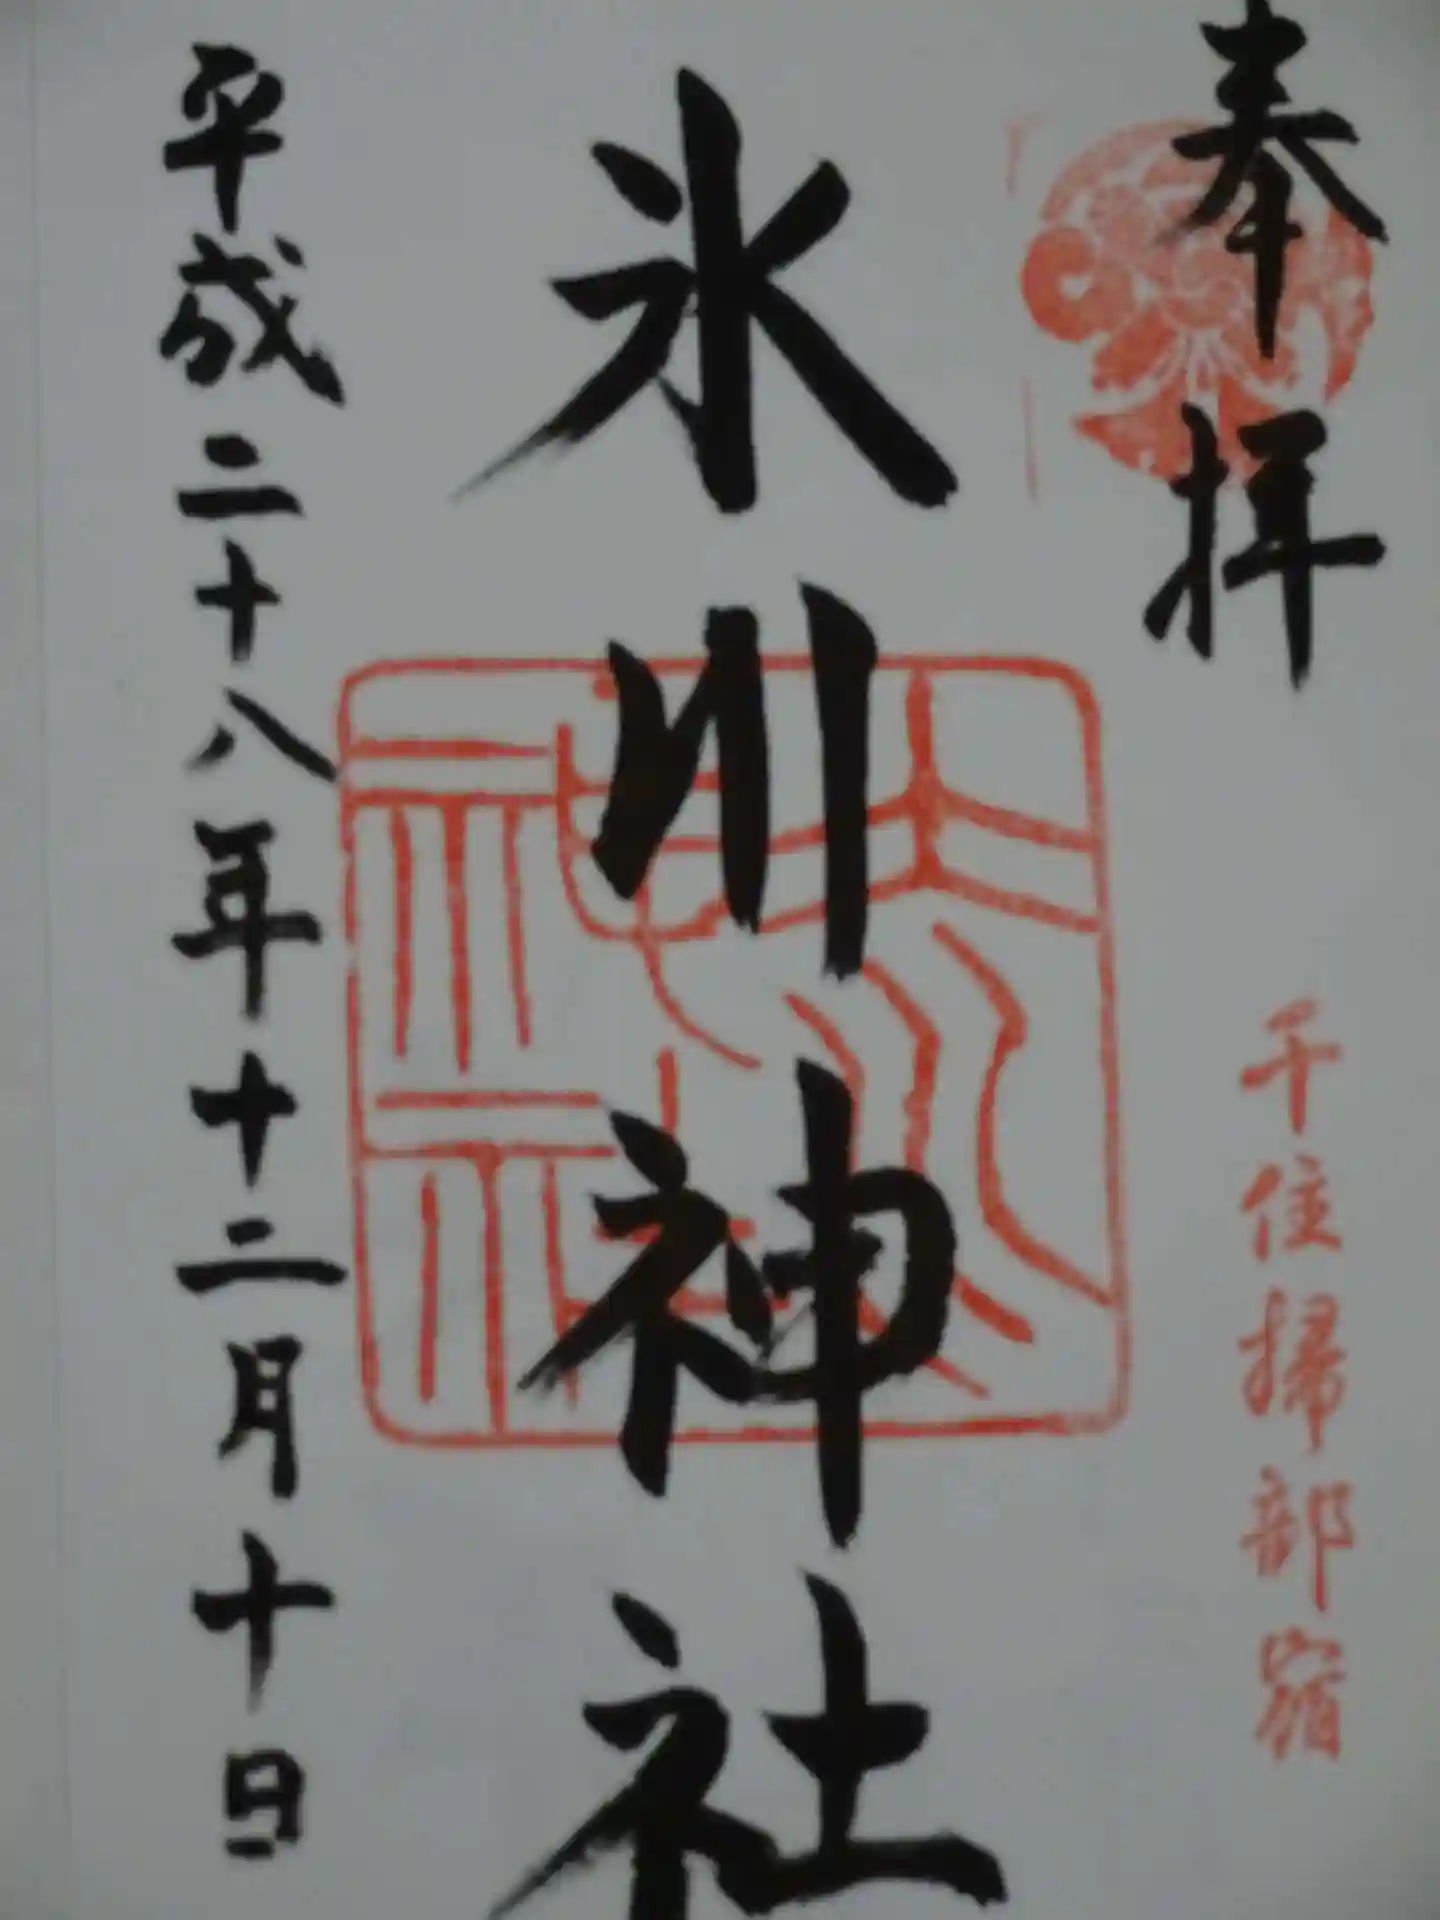 奉拝
千住掃部宿
氷川神社
平成二十八年十二月十日